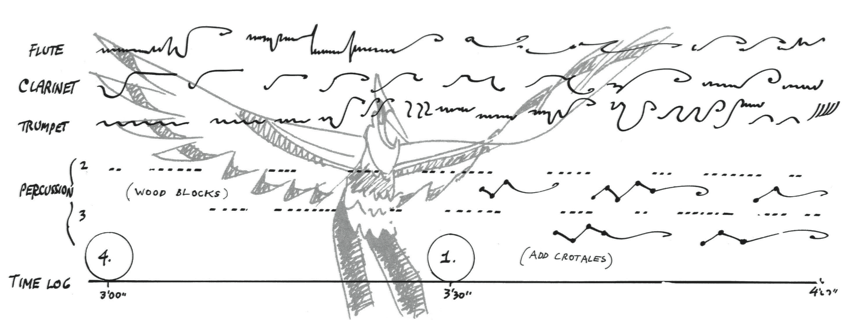 FLUTE
CLARINET
TRUMPET
2
PERCUSSION
(WOOD BLOCKS)
3
4.
1.
(ADD CROTALES)
TIME LOG
3'00"
3'30"